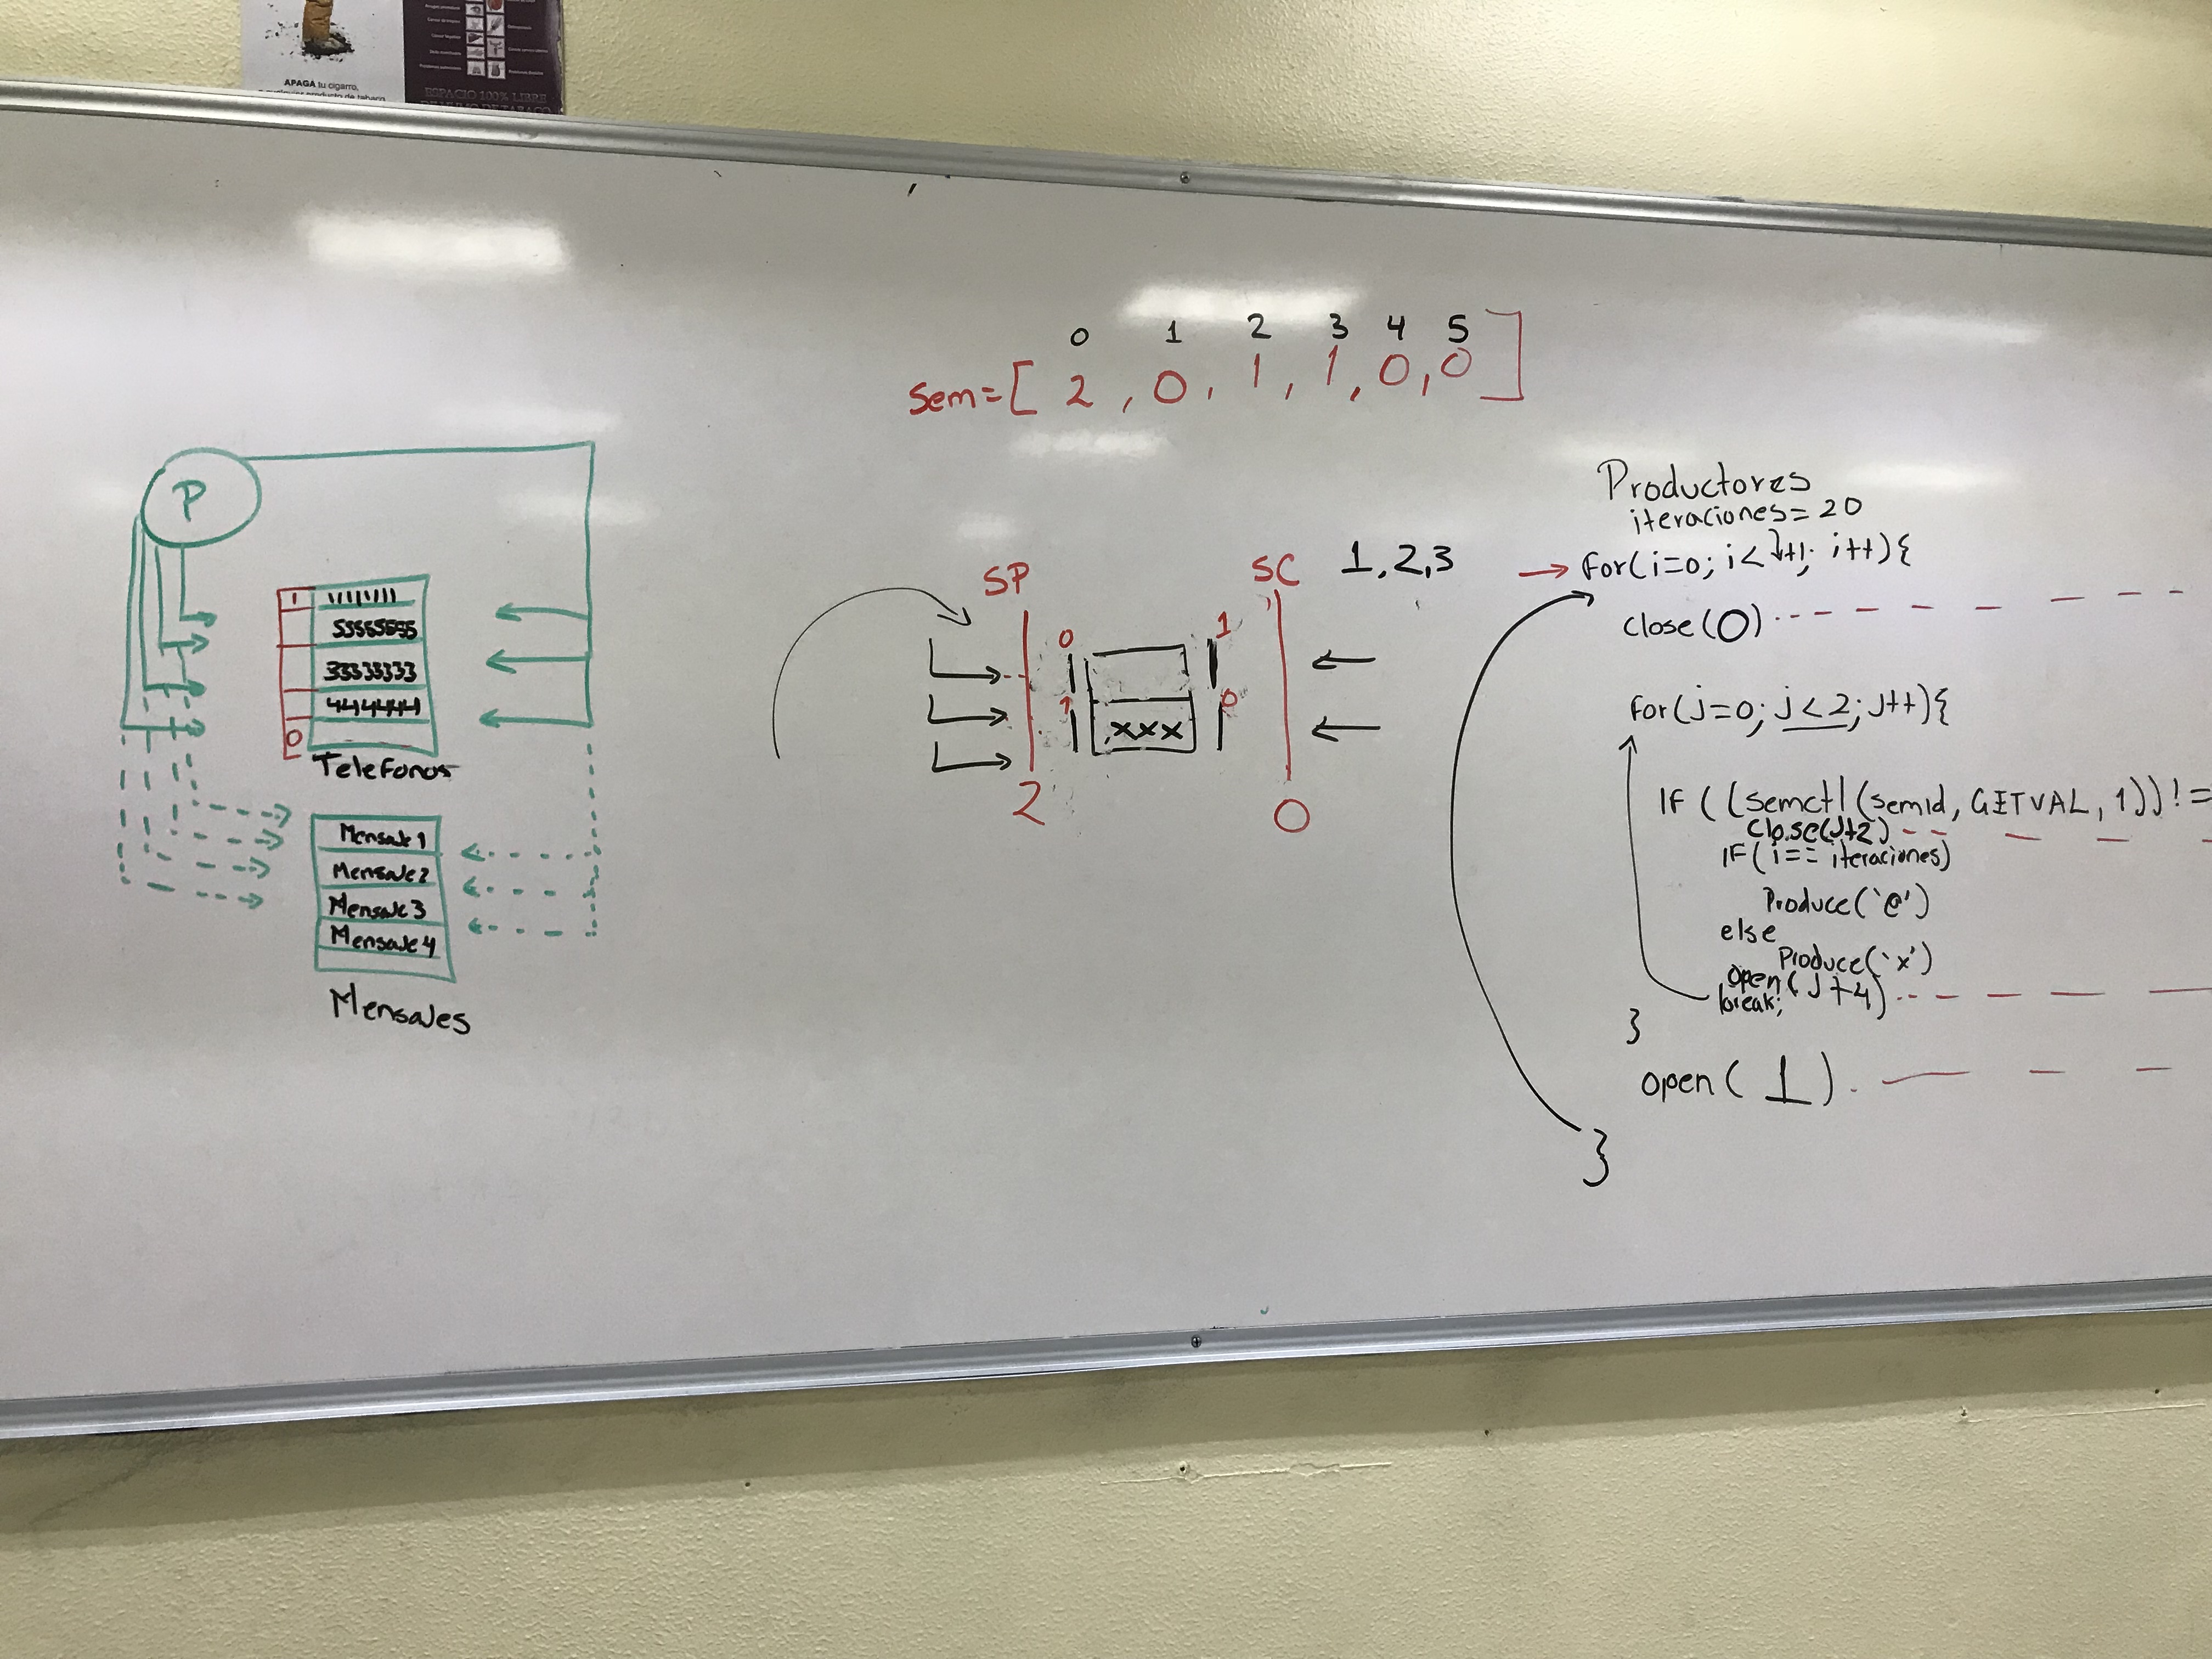 APAGA tu cigarro,
ESPACIO 100% LIBRE
0 1 2 3 4 5
Sem=[ 2 , 0 , 1 , 1 , 0 , 0 ]
P
1 11111111
55555555
33333333
444444
0
Telefonos
Mensaje1
Mensaje2
Mensaje3
Mensaje4
Mensajes
SP
SC
1,2,3
0
1
1
0
xxx
2
0
Productores
iteraciones=20
for(i=0; i< +1; i++){
close(0)
for(j=0; j<2; j++){
IF ( (semctl(semid, GETVAL, 1)) !=
close(j+2)
IF( i== iteraciones)
Produce('@')
else
Produce('x')
open(j+4)
break;
}
open( 1 )
}